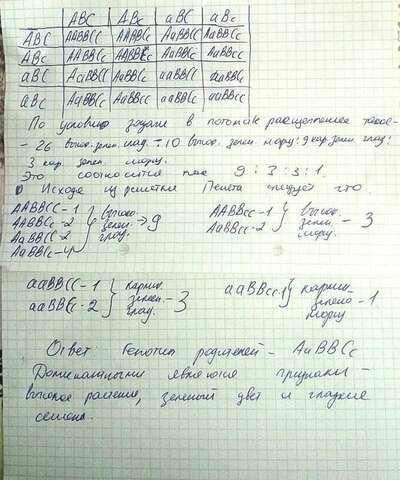 ABC ABc aBC aBc
ABC AABBCC AABBCc AaBBCC AaBBCc
ABc AABBCc AABBcc AaBBCc AaBBcc
aBC AaBBCC AaBBCc aaBBCC aaBBCc
aBc AaBBCc AaBBcc aaBBCc aaBBcc
По условию задачи в потомстве расщепление такое-
- 26 высок. зелен. глад. ÷ 10 высок. зелен. морщ: 9 кар. зелен. глад:
3 кар. зелен. морщ.
Это соотносится как 9:3:3:1.
Исходя из решетки Пенета следует что.
AABBCC-1
AABBCc-2
AaBBCC-2
AaBBCc-4
} высок. зелен. глад. → 9
AABBcc-1
AaBBcc-2
} высок. зелен. морщ. - 3
aaBBCC-1
aaBBCc-2
} карлик. зелен. глад. - 3
aaBBcc-1 } карлик. зелено морщ - 1
Ответ Генотип родителей - AaBBCc
Доминантными являются признаки -
высокое растение, зеленый цвет и гладкие
семена.